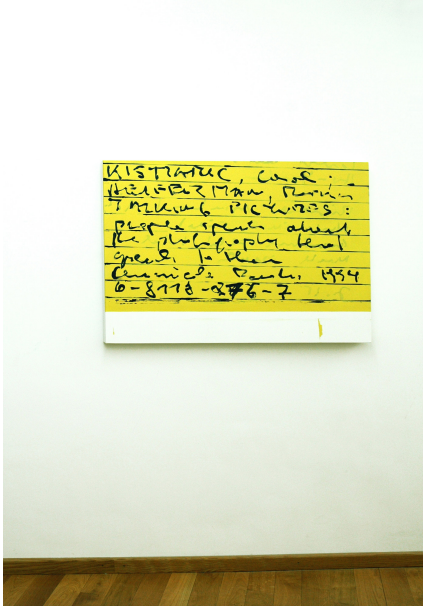 KISMARIC, Carole:
HEIFERMAN, Marvin
TALKING PICTURES:
people speak about
the photography that
speaks to them
Chronicle Books, 1994
0-8118-0376-7